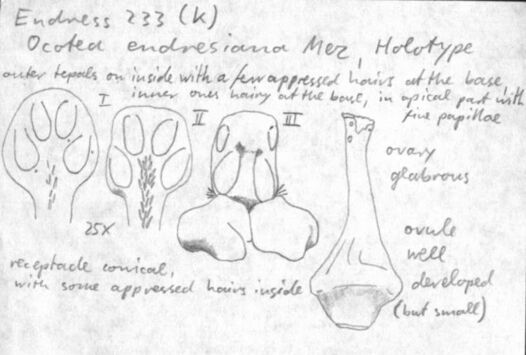 Endress 233 (K)
Ocotea endresiana Mez, Holotype
outer tepals on inside with a few appressed hairs at the base,
inner ones hairy at the base, in apical part with
fine papillae
I II III
ovary
glabrous
25X
ovule
well
developed
(but small)
receptacle conical,
with some appressed hairs inside